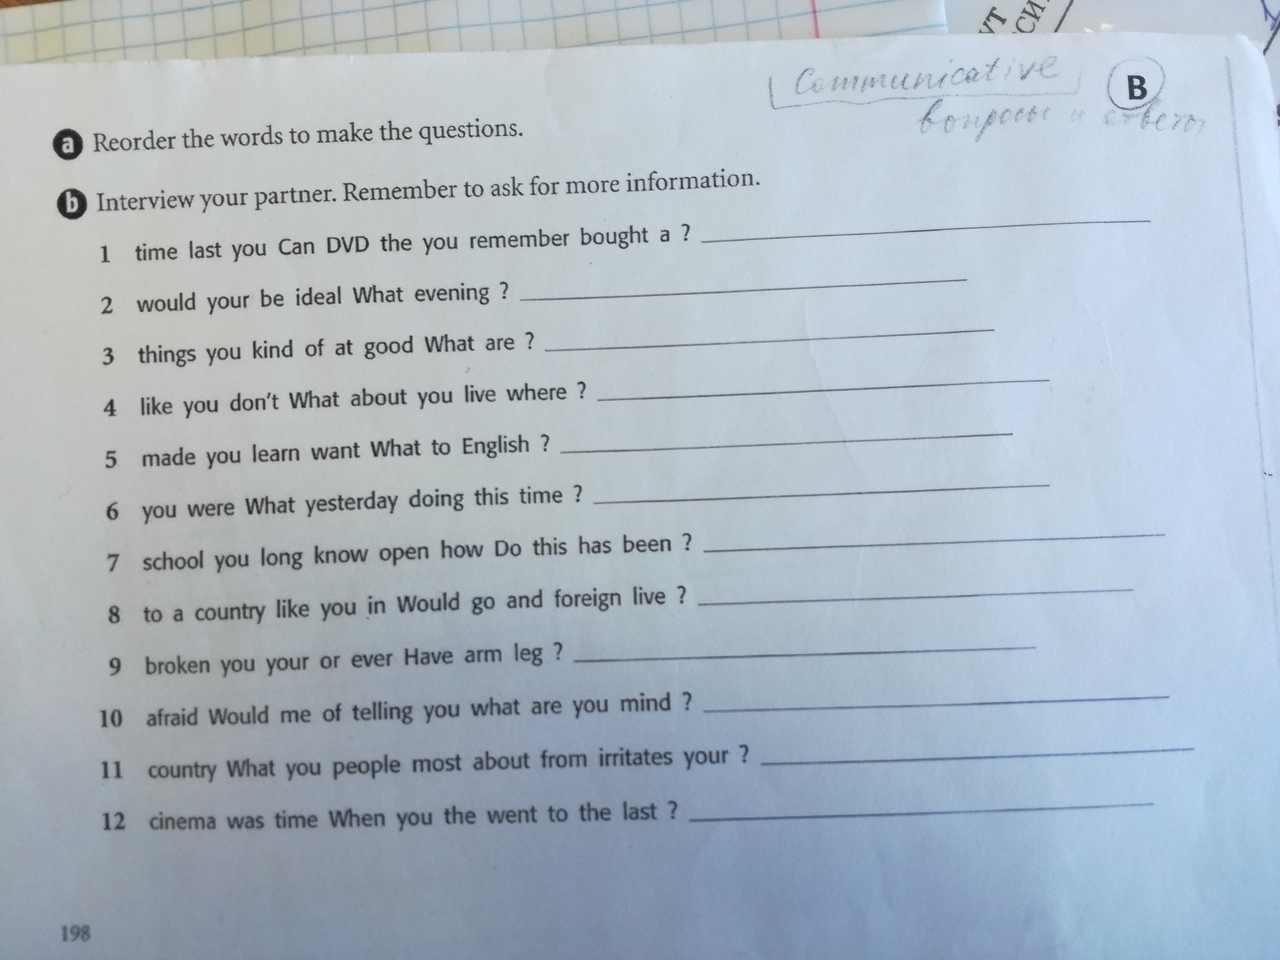 УТ
СИ
Communicative
B
вопросы и ответы
a Reorder the words to make the questions.
b Interview your partner. Remember to ask for more information.
1 time last you Can DVD the you remember bought a ?
2 would your be ideal What evening ?
3 things you kind of at good What are ?
4 like you don't What about you live where ?
5 made you learn want What to English ?
6 you were What yesterday doing this time ?
7 school you long know open how Do this has been ?
8 to a country like you in Would go and foreign live ?
9 broken you your or ever Have arm leg ?
10 afraid Would me of telling you what are you mind ?
11 country What you people most about from irritates your ?
12 cinema was time When you the went to the last ?
198